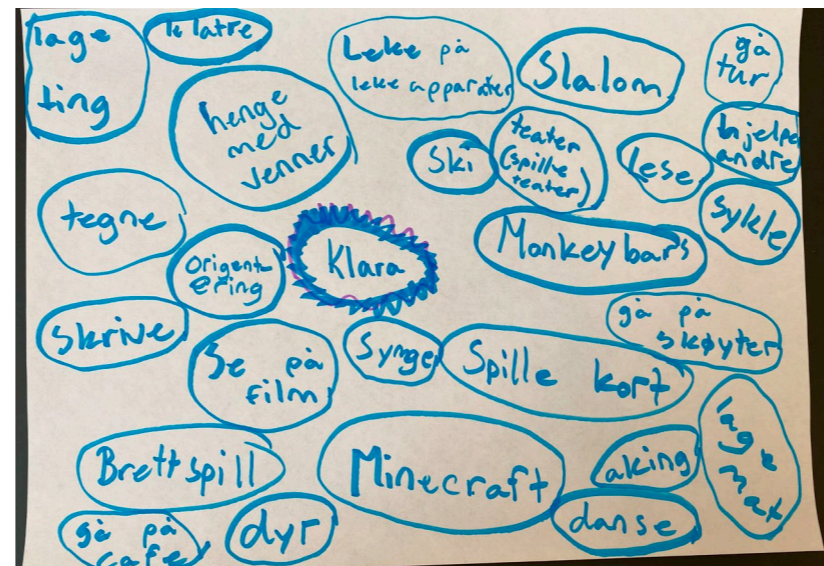 lage
ting
klatre
henge
med
venner
Leke på
lekeapparater
Slalom
gå
tur
hjelpe
andre
Ski
teater
(spille
teater)
lese
sykle
tegne
Origent-
ering
Klara
Monkeybars
skrive
Se på
film
Synge
Spille kort
gå på
skøyter
Brettspill
Minecraft
aking
lage
mat
gå på
cafe
dyr
danse